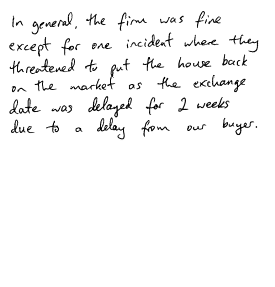 In general, the firm was fine
except for one incident where they
threatened to put the house back
on the market as the exchange
date was delayed for 2 weeks
due to a delay from our buyer.